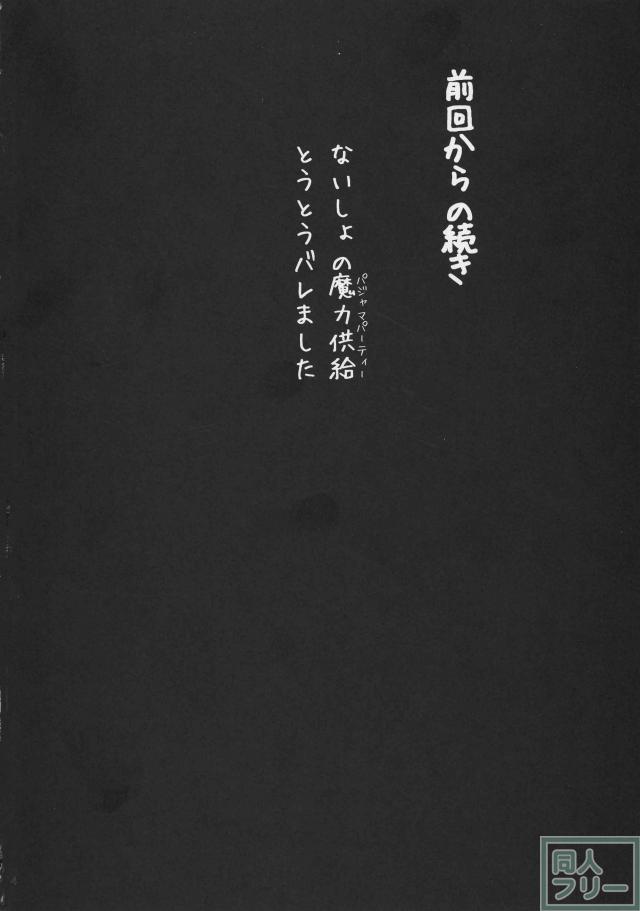 前回からの続き
ないしょの魔力供給
パジャマパーティー
とうとうバレました
同人
フリー